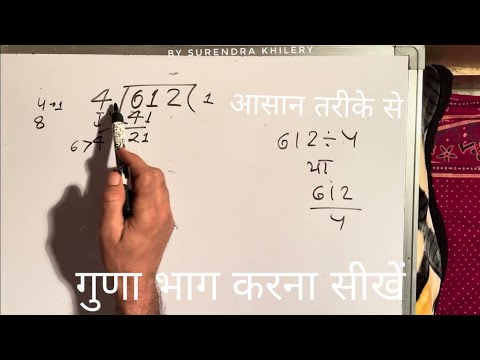 BY SURENDRA KHILERY
आसान तरीके से
4→1
8
4)612(1
41
6>4 21
612÷4
या
612
4
गुणा भाग करना सीखें